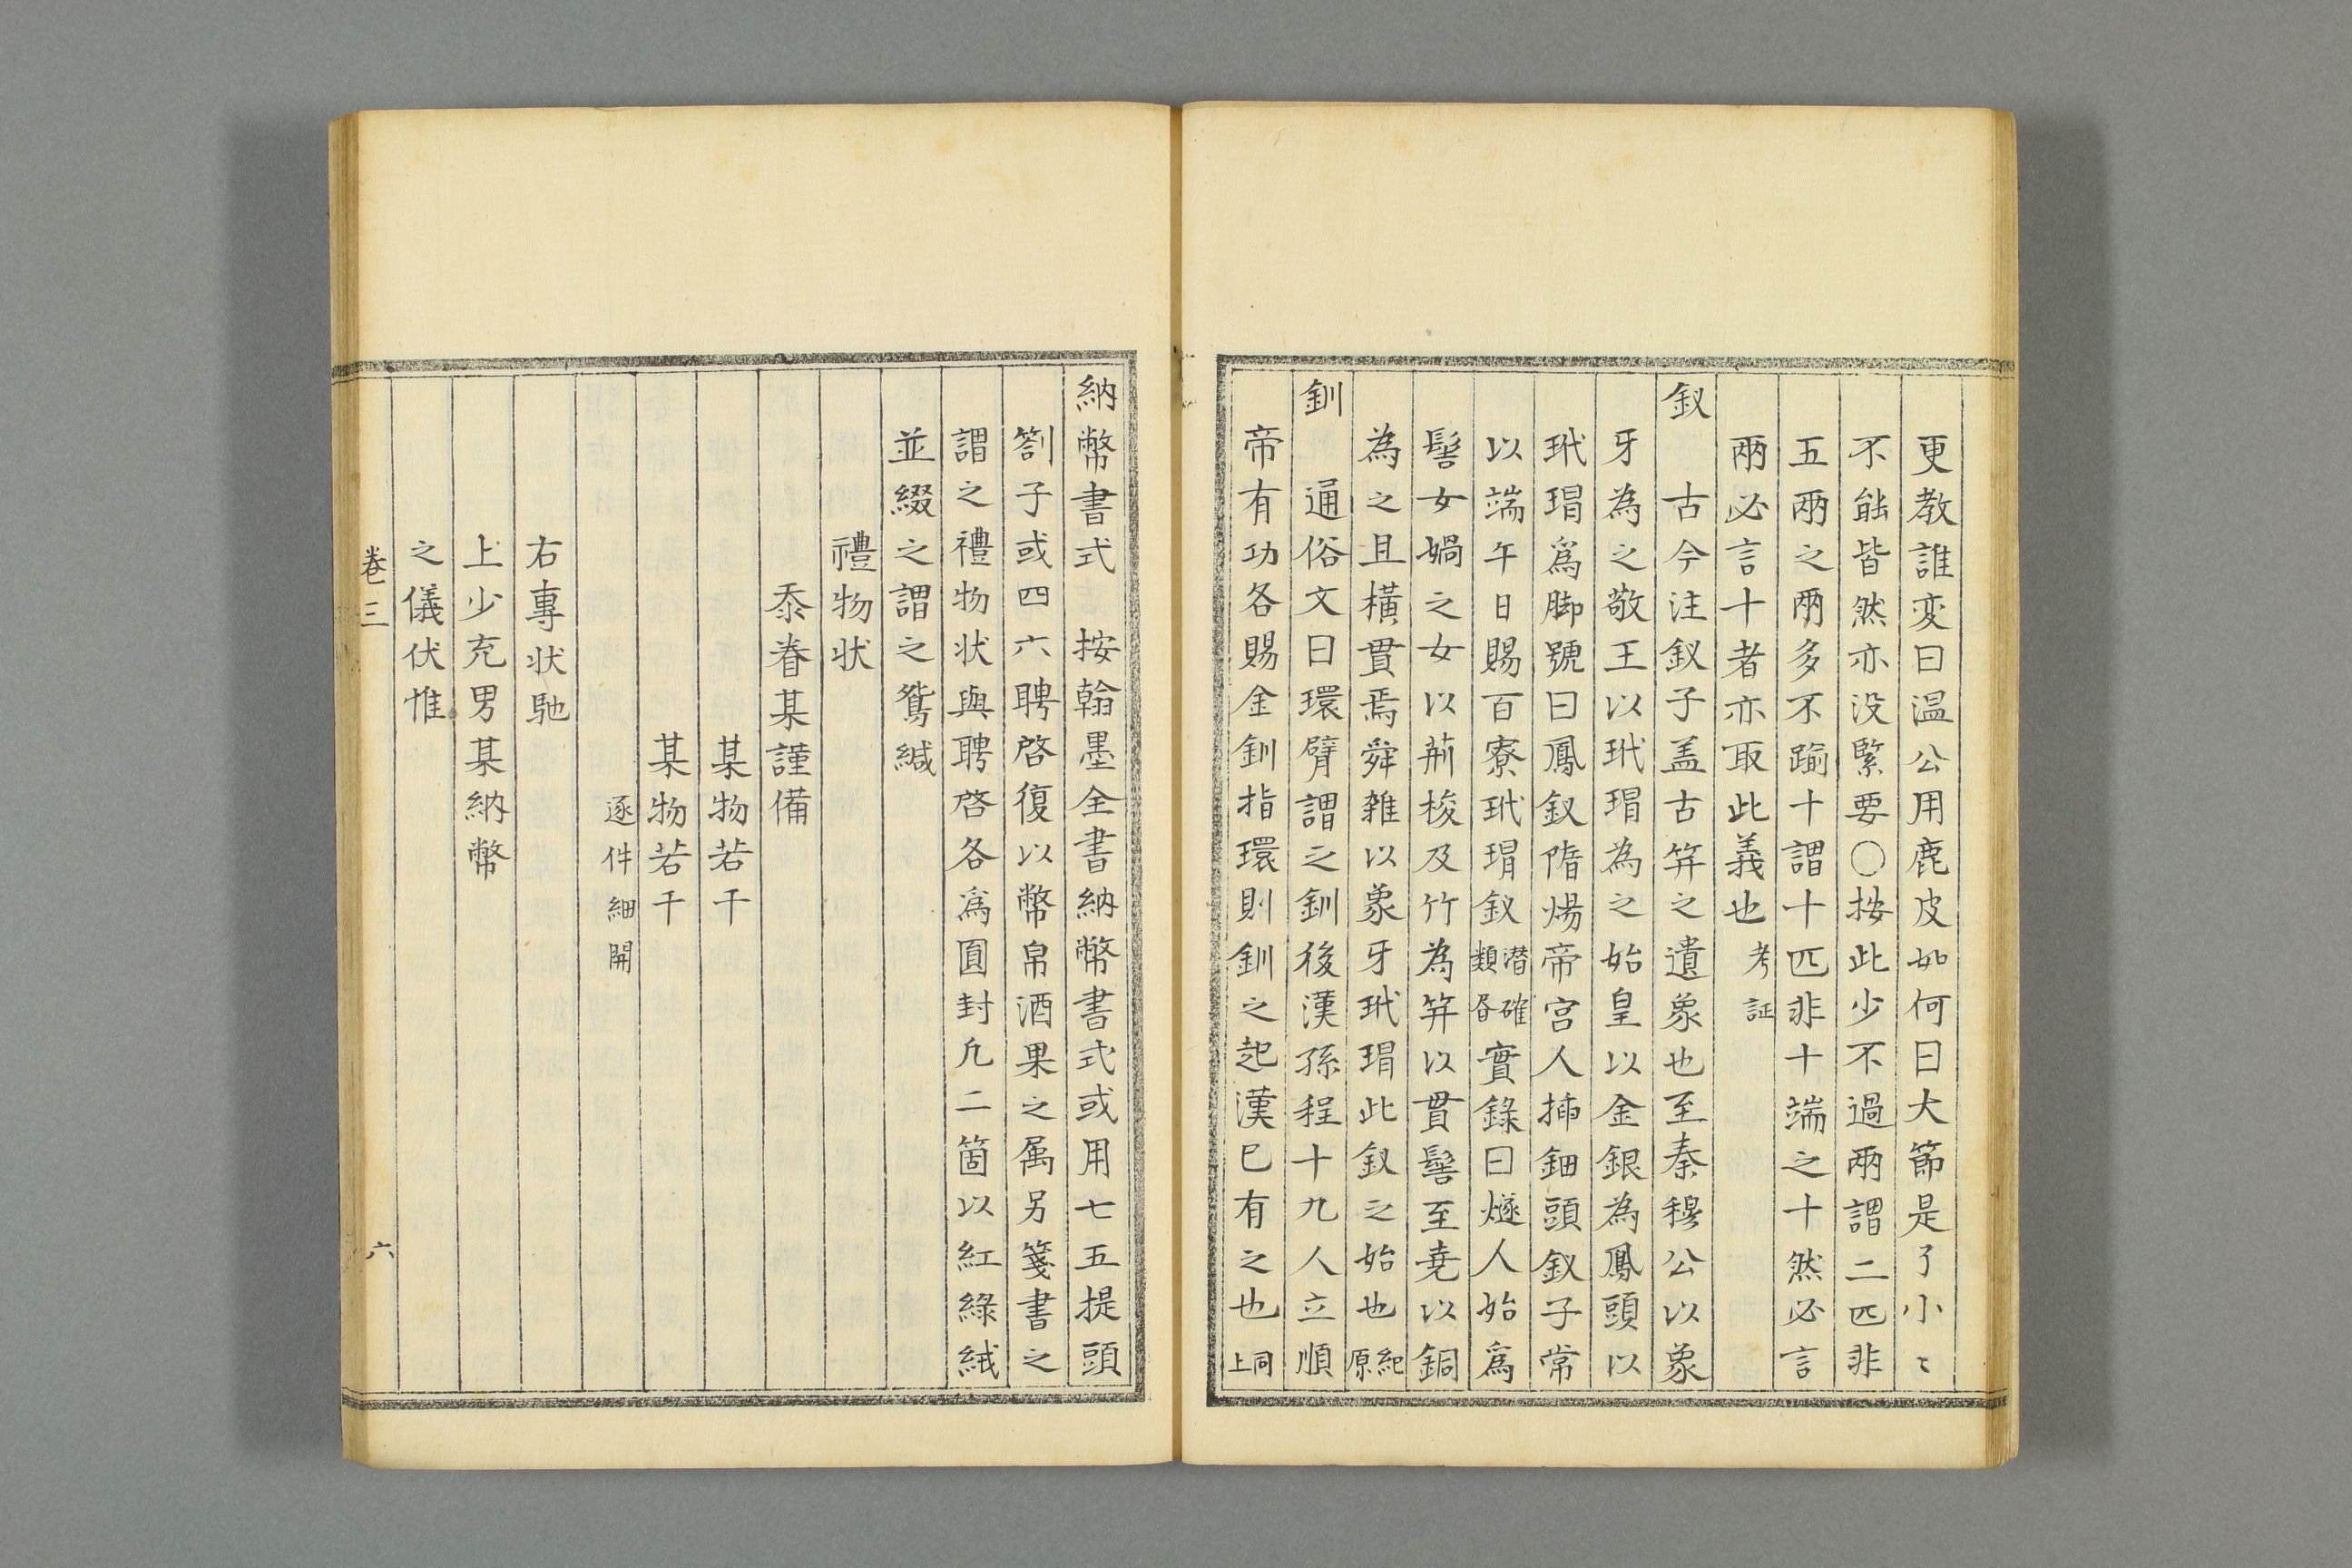 更教誰変曰温公用鹿皮如何曰大節是了小〻
不能皆然亦没緊要〇按此少不過兩謂二匹非
五兩之兩多不踰十謂十匹非十端之十然必言
兩必言十者亦取此義也考証
釵 古今注釵子盖古笄之遺象也至秦穆公以象
牙為之敬王以玳瑁為之始皇以金銀為鳳頭以
玳瑁爲脚號曰鳳釵隋煬帝宮人揷鈿頭釵子常
以端午日賜百寮玳瑁釵潜確類昏實錄曰燧人始爲
髻女媧之女以荊梭及竹為笄以貫髻至堯以銅
為之且橫貫焉舜雜以象牙玳瑁此釵之始也紀原
釧 通俗文曰環臂謂之釧後漢孫程十九人立順
帝有功各賜金釧指環則釧之起漢已有之也同上
納幣書式 按翰墨全書納幣書式或用七五提頭
劄子或四六聘啓復以幣帛酒果之属另箋書之
謂之禮物状與聘啓各爲圓封凡二箇以紅綠絨
並綴之謂之鴛緘
禮物状
忝眷某謹備
某物若干
某物若干
逐件細開
右專状馳
上少充男某納幣
之儀伏惟
卷三 六